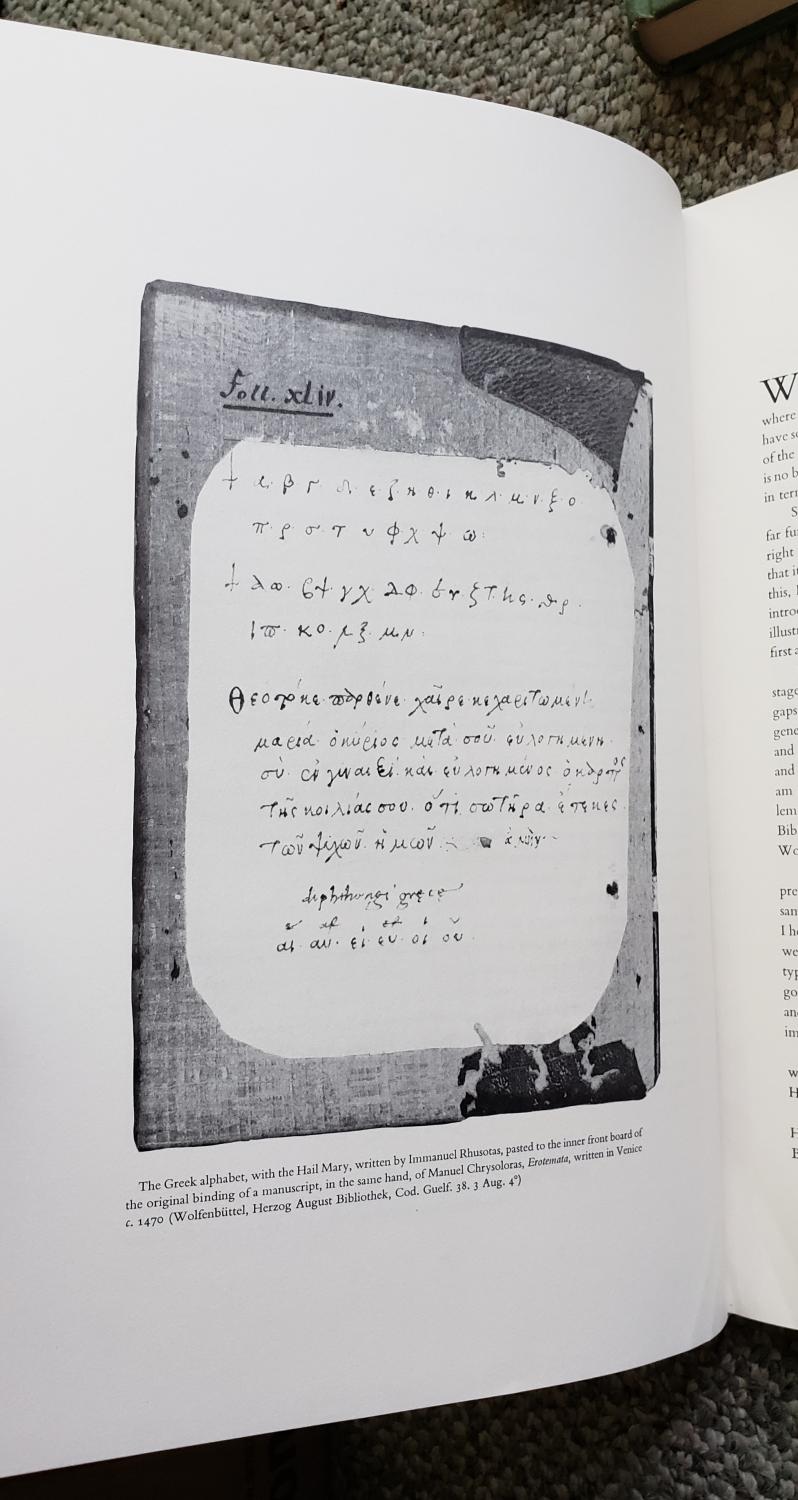 Foll. xliv.
† α· β· γ· δ· ε· ζ· η· θ· ι· κ· λ· μ· ν· ξ· ο·
π· ρ· σ· τ· υ· φ· χ· ψ· ω:
† αω· βψ· γχ· δφ· ευ· ζτ· ης· θρ·
ιπ· κο· λξ· μν:
Θεοτόκε παρθένε χαῖρε κεχαριτωμένη
μαρία· ὁ κύριος μετὰ σοῦ· εὐλογημένη·
σὺ· ἐν γυναιξεί· καὶ εὐλογημένος ὁ καρπὸς
τῆς κοιλίας σου· ὅτι σωτῆρα ἔτεκες·
τῶν ψυχῶν ἡμῶν· ἀμήν
diphthongi grece
αι· αυ· ει· ευ· οι· ου·
The Greek alphabet, with the Hail Mary, written by Immanuel Rhusotas, pasted to the inner front board of
the original binding of a manuscript, in the same hand, of Manuel Chrysoloras, Erotemata, written in Venice
c. 1470 (Wolfenbüttel, Herzog August Bibliothek, Cod. Guelf. 38. 3 Aug. 4°)
W
where
have
of the
is no
in
S
far
right
that
this,
first
stage
gaps
and
and
am
Bib
we
and
w
H
H